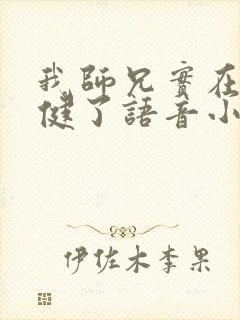 我師兄實在
健了語音小
伊佐木李果